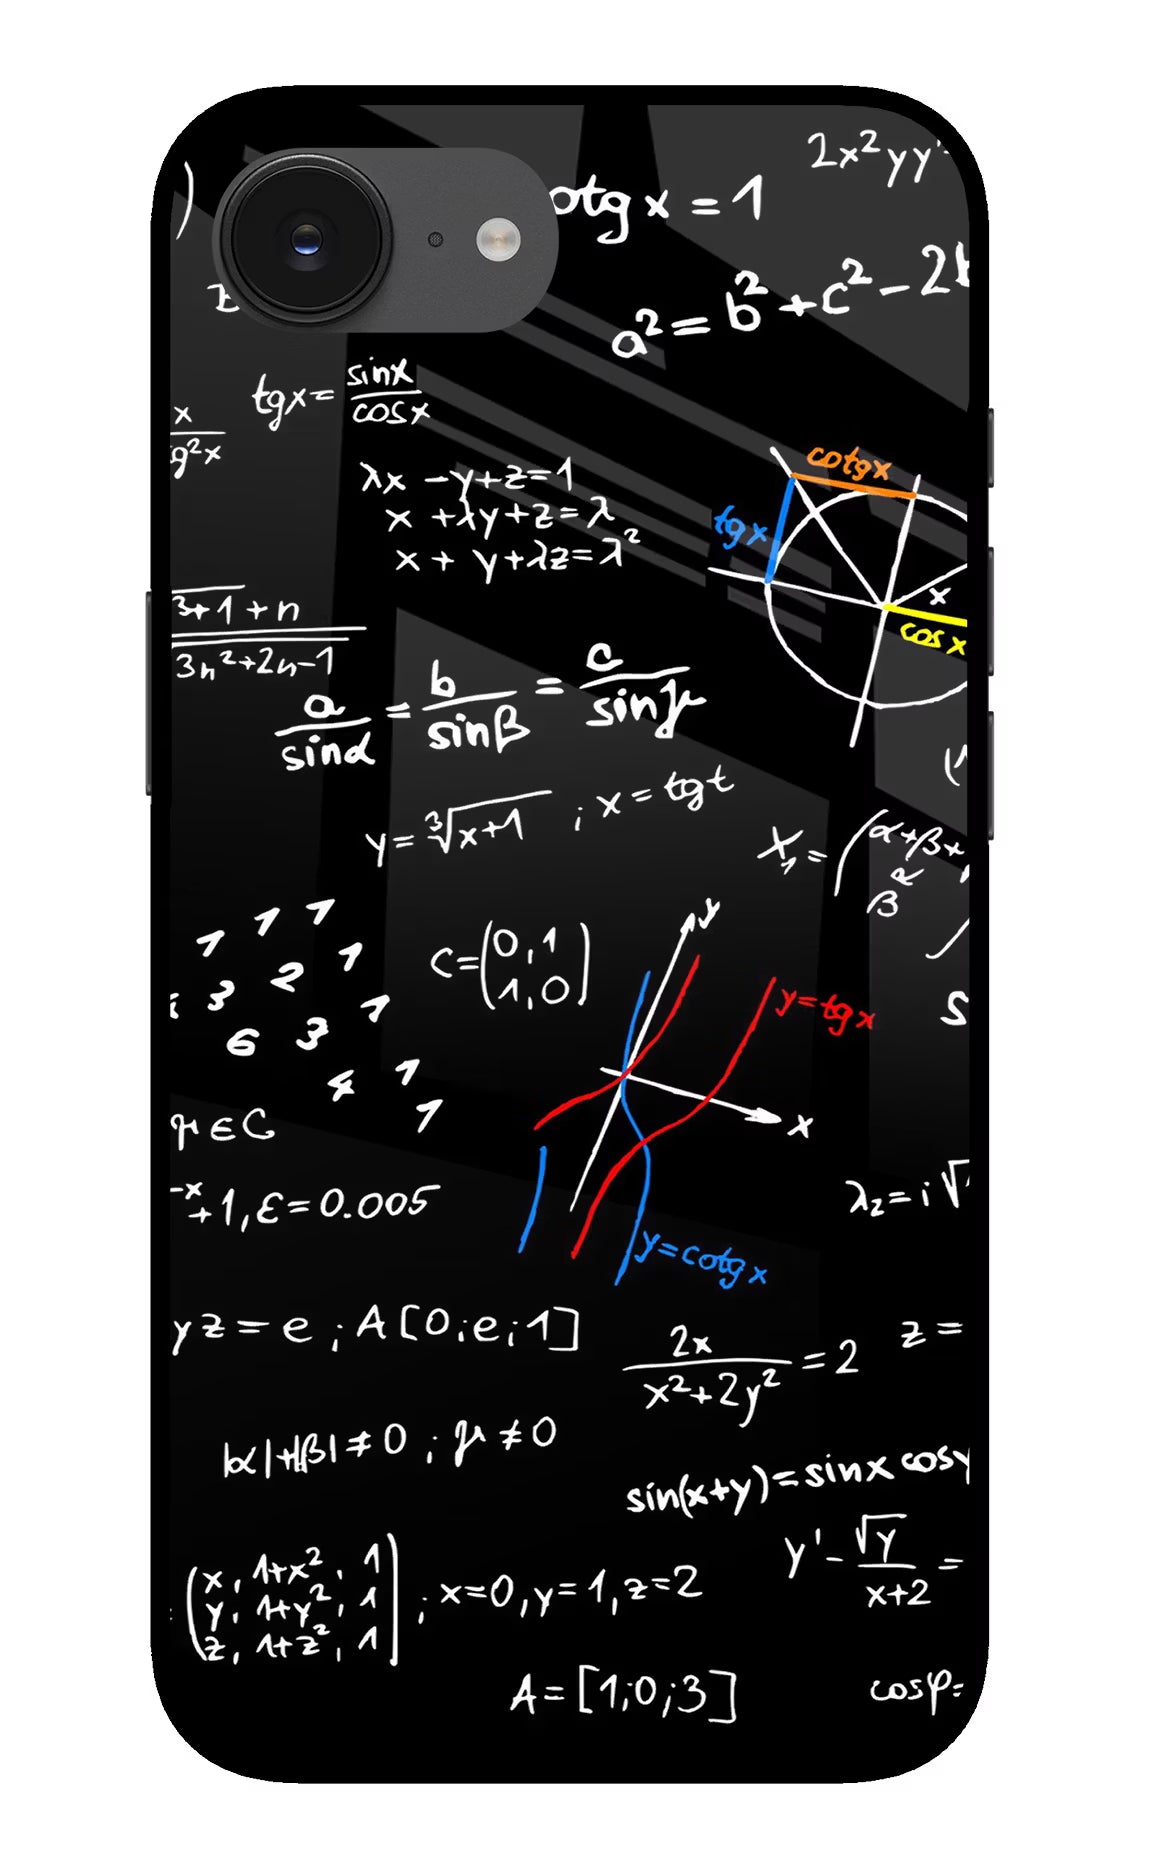 2x²yy'
otg x = 1
a² = b² + c² - 2b
tgx = sinx/cosx
x/g²x
λx - y + z = 1
x + λy + z = λ
x + y + λz = λ²
cotgx
tgx
x
cos x
3+1 + n
3n²+2n-1
a/sinα = b/sinβ = c/sinγ
y = ∛x+1 ; x = tgt
X₁ = (α+β+
β α
1 1 1
3 2 1
6 3 1
4 1
1
C = (0,1
1,0)
y
y=tgx
x
y=cotgx
S
γ∈C
-x+1, ε=0.005
λ₂ = i√
yz = e ; A[0;e;1]
2x/x²+2y² = 2
z =
|α|+|β|≠0 ; γ≠0
sin(x+y) = sinx cosy
y' - √y/x+2 =
(x, 1+x², 1
y, 1+y², 1
z, 1+z², 1) ; x=0, y=1, z=2
A = [1;0;3]
cosφ=